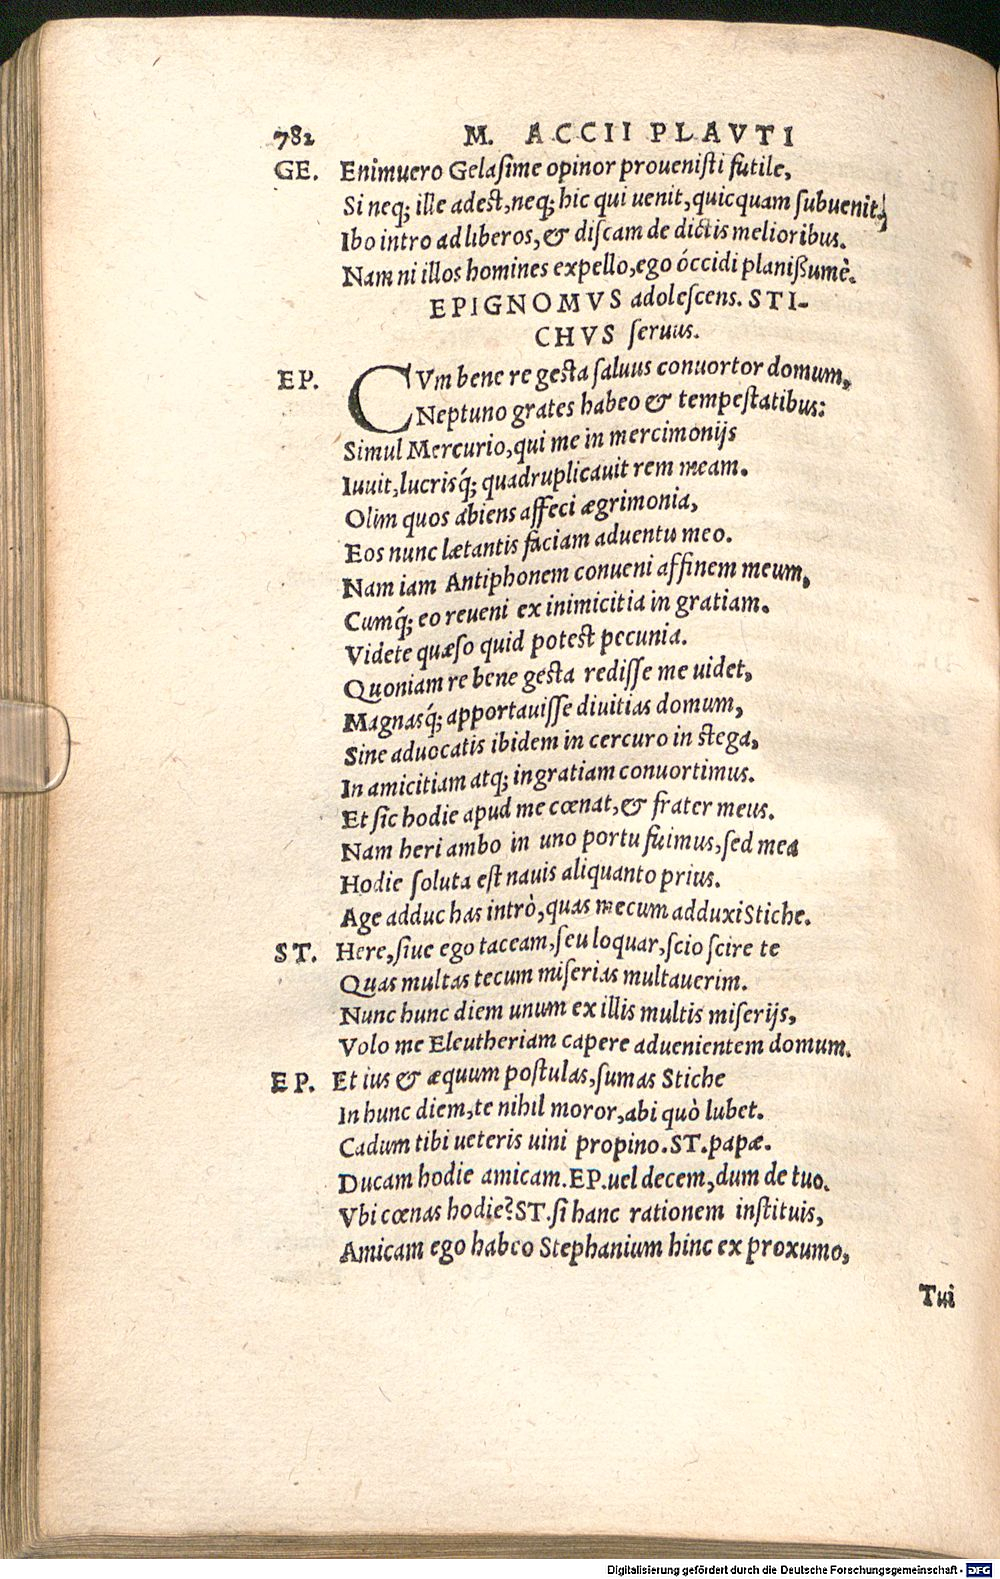 782 M. ACCII PLAVTI
GE. Enimuero Gelaſime opinor prouenisti futile,
Si neq; ille adest, neq; hic qui uenit, quicquam ſubuenit.
Ibo intro ad liberos, & diſcam de dictis melioribus.
Nam ni illos homines expello, ego óccidi planißumè.
EPIGNOMVS adoleſcens. STI-
CHVS ſeruus.
EP. CVm bene re gesta ſaluus conuortor domum,
Neptuno grates habeo & tempestatibus:
Simul Mercurio, qui me in mercimonijs
Iuuit, lucrisq́; quadruplicauit rem meam.
Olim quos abiens affeci ægrimonia,
Eos nunc lætantis faciam aduentu meo.
Nam iam Antiphonem conueni affinem meum,
Cumq́; eo reueni ex inimicitia in gratiam.
Videte quæſo quid potest pecunia.
Quoniam re bene gesta rediſſe me uidet,
Magnasq́; apportauiſſe diuitias domum,
Sine aduocatis ibidem in cercuro in stega,
In amicitiam atq; in gratiam conuortimus.
Et ſic hodie apud me cœnat, & frater meus.
Nam heri ambo in uno portu fuimus, ſed mea
Hodie ſoluta eſt nauis aliquanto prius.
Age adduc has intrò, quas mecum adduxi Stiche.
ST. Here, ſiue ego taceam, ſeu loquar, ſcio ſcire te
Quas multas tecum miſerias multauerim.
Nunc hunc diem unum ex illis multis miſerijs,
Volo me Eleutheriam capere aduenientem domum.
EP. Et ius & æquum poſtulas, ſumas Stiche
In hunc diem, te nihil moror, abi quò lubet.
Cadum tibi ueteris uini propino. ST. papæ.
Ducam hodie amicam. EP. uel decem, dum de tuo.
Vbi cœnas hodie? ST. ſi hanc rationem inſtituis,
Amicam ego habeo Stephanium hinc ex proxumo,
Tui
Digitalisierung gefördert durch die Deutsche Forschungsgemeinschaft - DFG